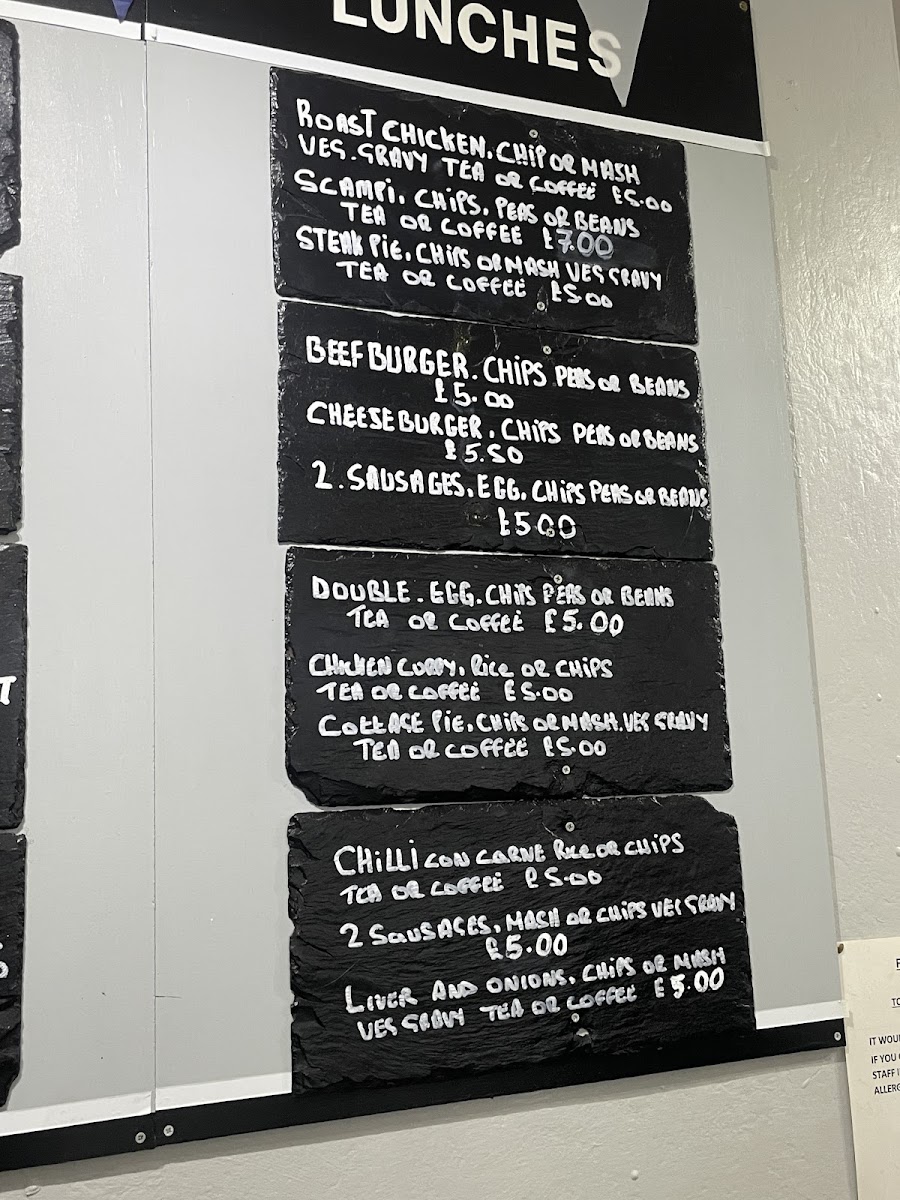 LUNCHES
ROAST CHICKEN. CHIP OR MASH
VEG. GRAVY TEA OR COFFEE £5.00
SCAMPI. CHIPS. PEAS OR BEANS
TEA OR COFFEE £7.00
STEAK PIE. CHIPS OR MASH VEG GRAVY
TEA OR COFFEE £5.00
BEEFBURGER. CHIPS PEAS OR BEANS
£5.00
CHEESEBURGER. CHIPS PEAS OR BEANS
£5.50
2. SAUSAGES. EGG. CHIPS PEAS OR BEANS
£5.00
DOUBLE. EGG. CHIPS PEAS OR BEANS
TEA OR COFFEE £5.00
CHICKEN CURRY. RICE OR CHIPS
TEA OR COFFEE £5.00
COTTAGE PIE. CHIPS OR MASH. VEG GRAVY
TEA OR COFFEE £5.00
CHILLI CON CARNE RICE OR CHIPS
TEA OR COFFEE £5.00
2 SAUSAGES. MASH OR CHIPS VEG GRAVY
£5.00
LIVER AND ONIONS. CHIPS OR MASH
VEG GRAVY TEA OR COFFEE £5.00
IT WOU
IF YOU
STAFF
ALLERG